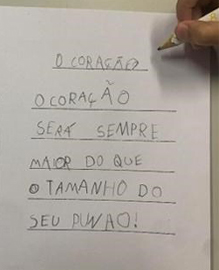 O CORAÇÃO
O CORAÇÃO
SERÁ SEMPRE
MAIOR DO QUE
O TAMANHO DO
SEU PUNÃO!